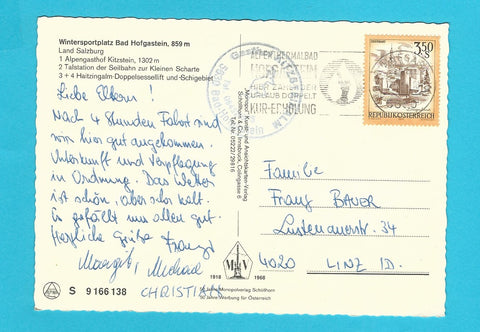 Wintersportplatz Bad Hofgastein, 859 m
Land Salzburg
1 Alpengasthof Kitzstein, 1302 m
2 Talstation der Seilbahn zur Kleinen Scharte
3 + 4 Haitzingalm-Doppelsessellift und Schigebiet
Liebe Eltern!
Nach 4 Stunden Fahrt sind
wir hier gut angekommen.
Unterkunft und Verpflegung
in Ordnung. Das Wetter
ist schön, aber sehr kalt.
Es gefällt uns allen gut.
Herzliche Grüße Franzi
Margit, Michael
CHRISTIAN
S 9 166 138
Monopol-, Kunst- und Ansichtskarten-Verlag
Schöllhorn & Co., Innsbruck
Tel.-Nr. 05222/29816
M V
1918 1968
50 Jahre Monopolverlag Schöllhorn
50 Jahre Werbung für Österreich
ALPENTHERMALBAD
HOFGASTEIN
HIER ZÄHLT DER
URLAUB DOPPELT
KUR-ERHOLUNG
3.50
S
REPUBLIK ÖSTERREICH
Familie
Franz BAUER
Lustenauerstr. 34
4020 LINZ /D.